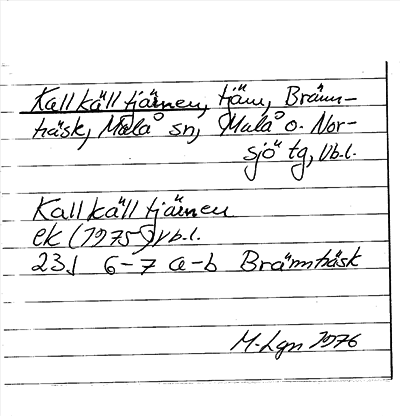 Kallkälltjärnen, tjärn, Bränn-
träsk, Malå sn, Malå o. Nor-
sjö tg, Vb.l.
Kallkälltjärnen
ek (1975) Vb.l.
23J 6-7 a-b Brännträsk
M. Lgn 1976